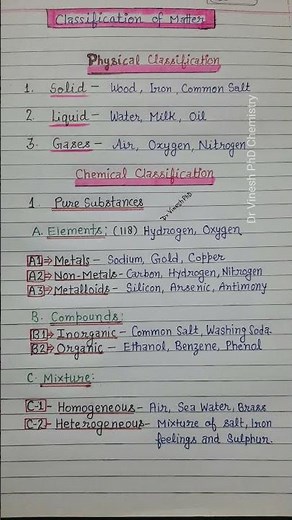 Classification of Matter
Physical Classification
1. Solid - Wood, Iron, Common Salt
2. Liquid - Water, Milk, Oil
3. Gases - Air, Oxygen, Nitrogen
Dr Vinesh PhD Chemistry
Chemical Classification
1. Pure Substances
Dr Vinesh PhD
A. Elements: (118) Hydrogen, Oxygen
A1⇒ Metals - Sodium, Gold, Copper
A2⇒ Non-Metals - Carbon, Hydrogen, Nitrogen
A3⇒ Metalloids - Silicon, Arsenic, Antimony
B. Compounds:
B1⇒ Inorganic - Common Salt, Washing Soda.
B2⇒ Organic - Ethanol, Benzene, Phenol
C. Mixture:
C-1 - Homogeneous - Air, Sea Water, Brass
C-2 - Heterogeneous - Mixture of salt, Iron
feelings and Sulphur.